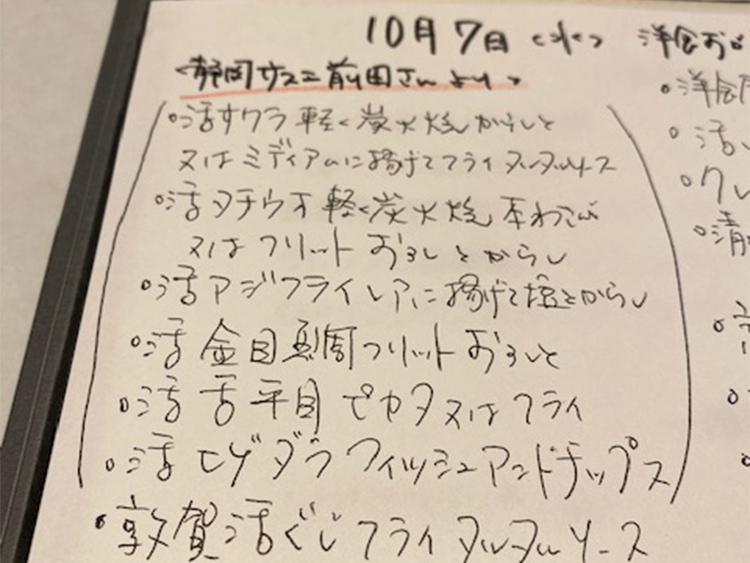 10月7日 <水> 洋食お
<静岡サスエ前田さんより>
○活サワラ軽く炭火焼からしと
又はミディアムに揚げてフライタルタルソース
○活タチウオ軽く炭火焼本わさび
又はフリットおろしとからし
○活アジフライレアに揚げて塩とからし
○活金目鯛フリットおろしと
○活舌平目ピカタ又はフライ
○活ヒゲダラフィッシュアンドチップス
•敦賀活ぐじフライタルタルソース
•洋食
○活
○ク
○清